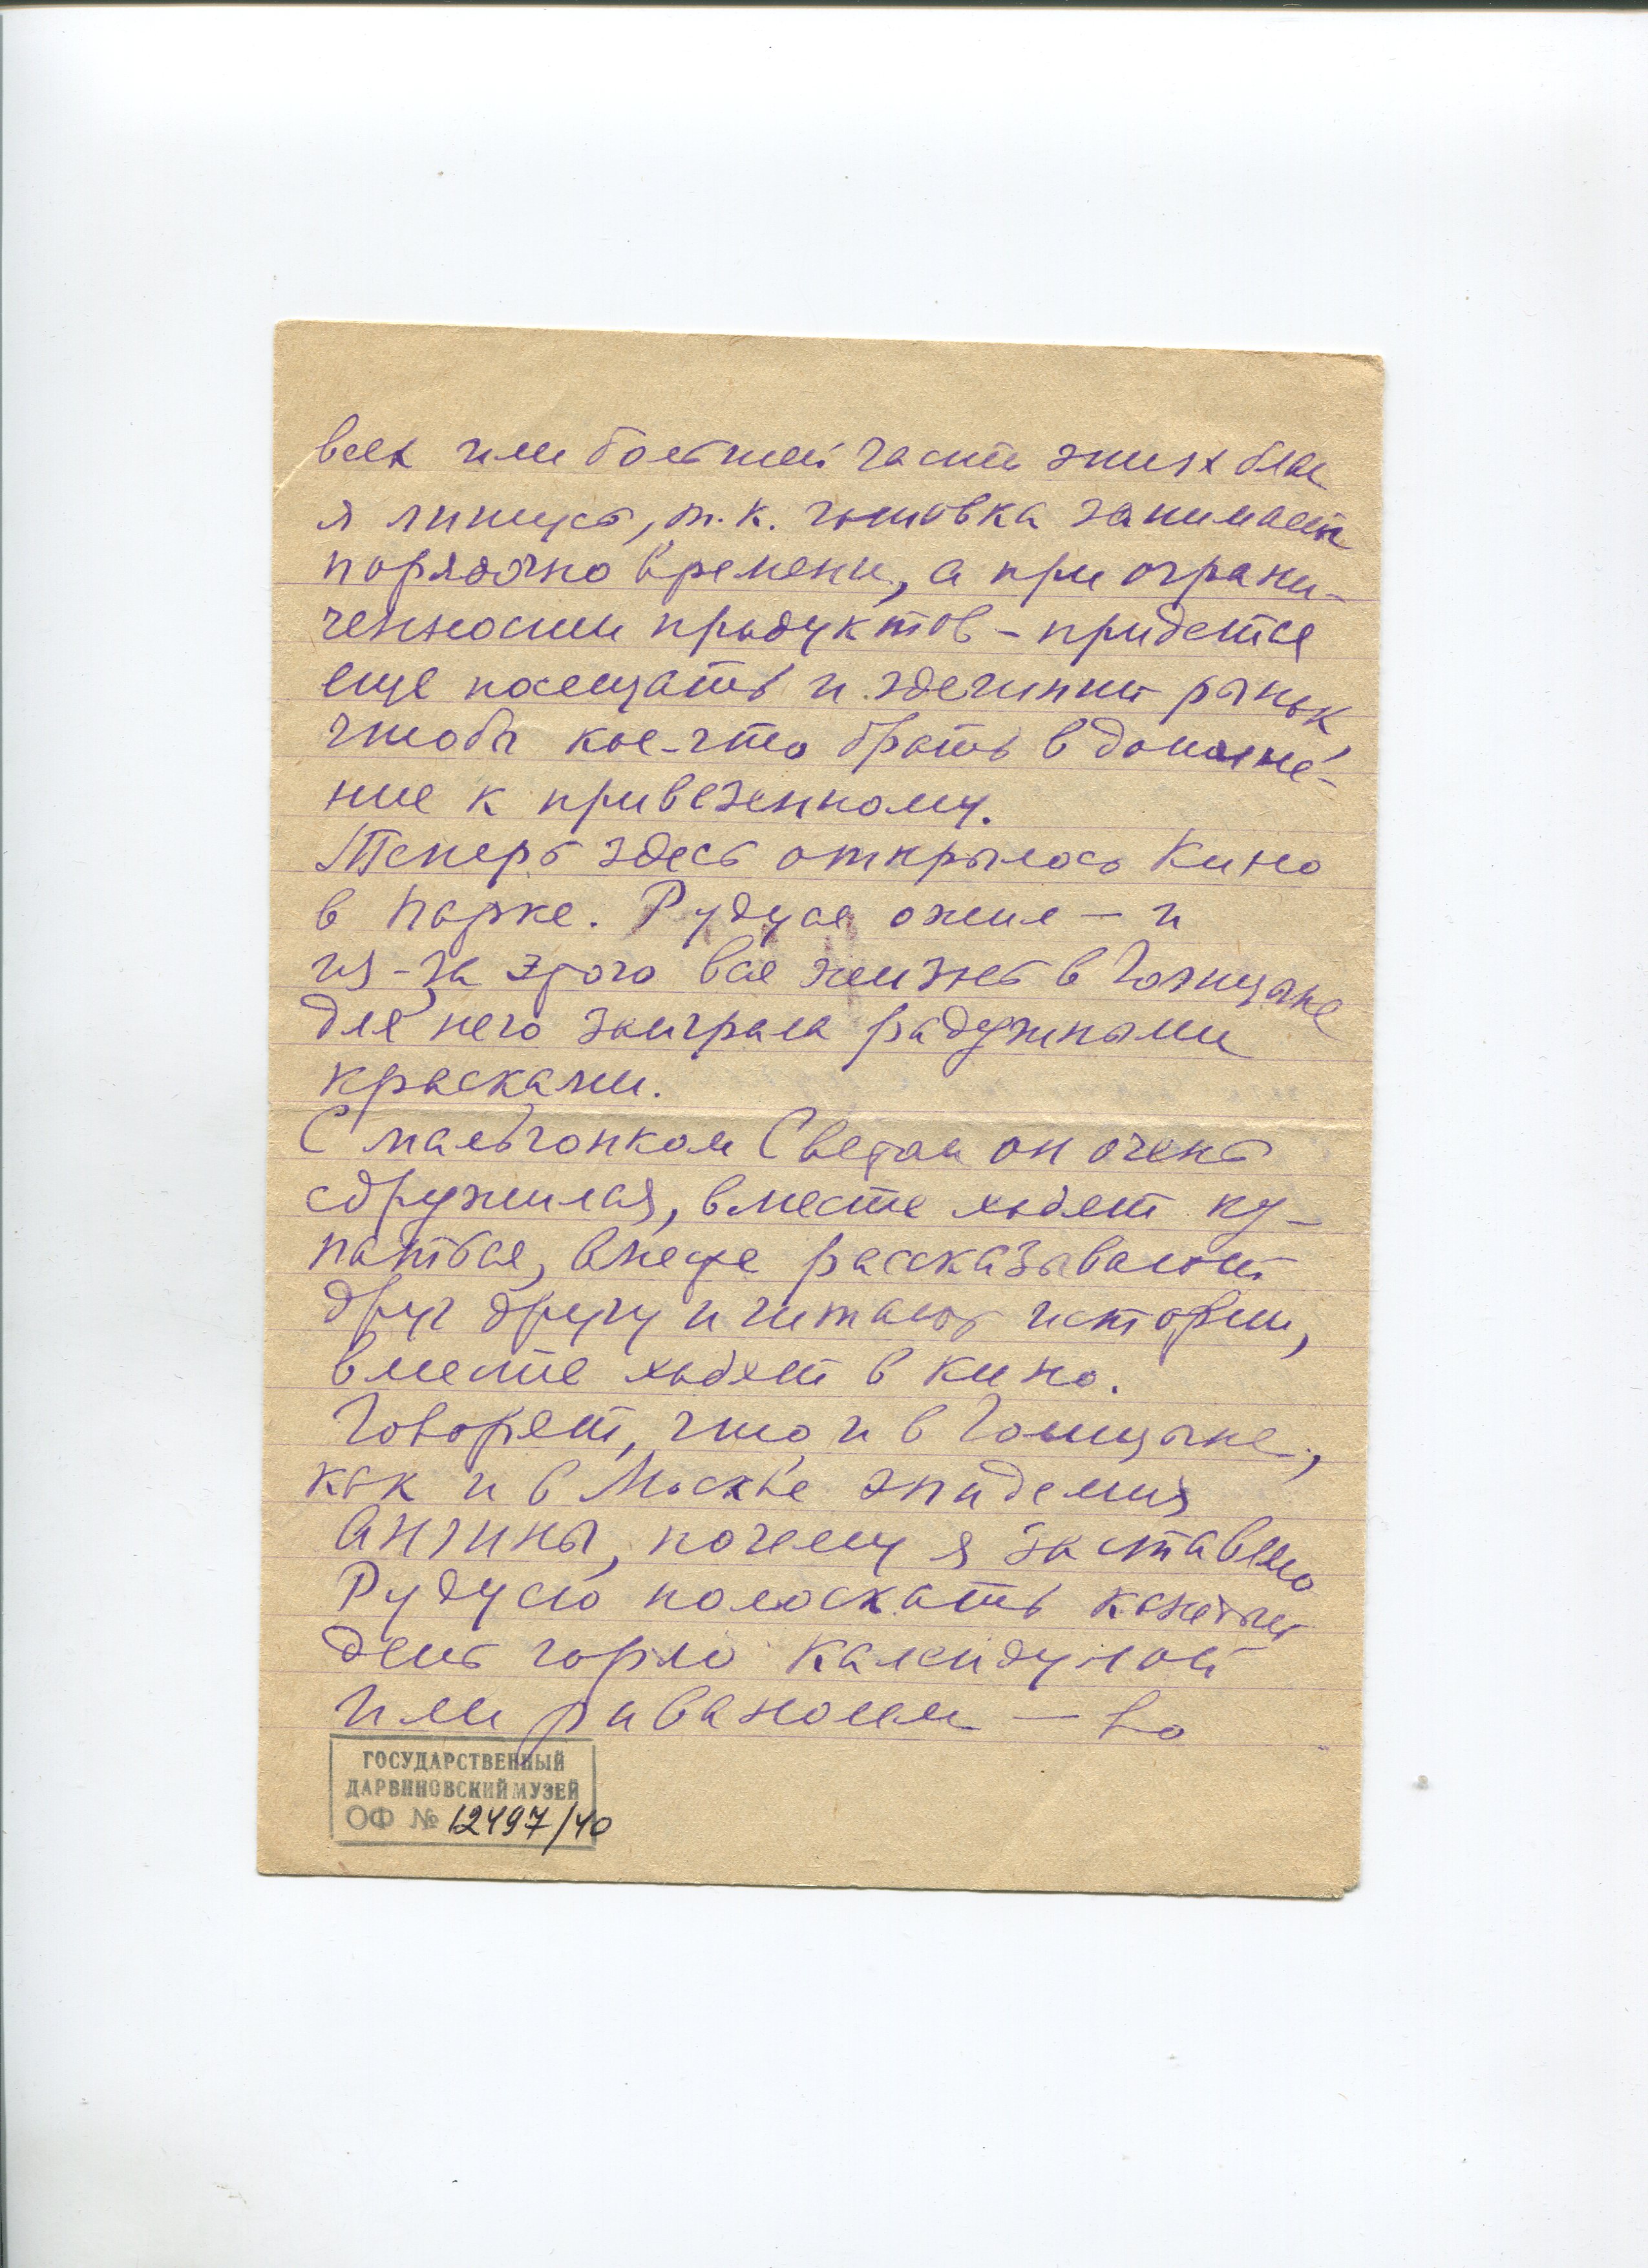 всех или большей части этих благ
я лишусь, т.к. готовка занимает
порядочно времени, а при ограни-
ченности продуктов - придется
еще посещать и здешний рынок,
чтобы кое-что брать в дополне-
ние к привезенному.
Теперь здесь открылось Кино
в парке. Рудуся ожил - и
из-за этого вся жизнь в Голицыне
для него заиграла радужными
красками.
С мальчонком Светой он очень
сдружился, вместе ходят ку-
паться, вместе рассказывают
друг другу и читают истории,
вместе ходят в кино.
Говорят, что и в Голицыне,
как и в Москве эпидемия
Ангины, почему я заставляю
Рудусю полоскать каждый
день горло Календулой
или риванолем - во
ГОСУДАРСТВЕННЫЙ
ДАРВИНОВСКИЙ МУЗЕЙ
ОФ № 12497/40